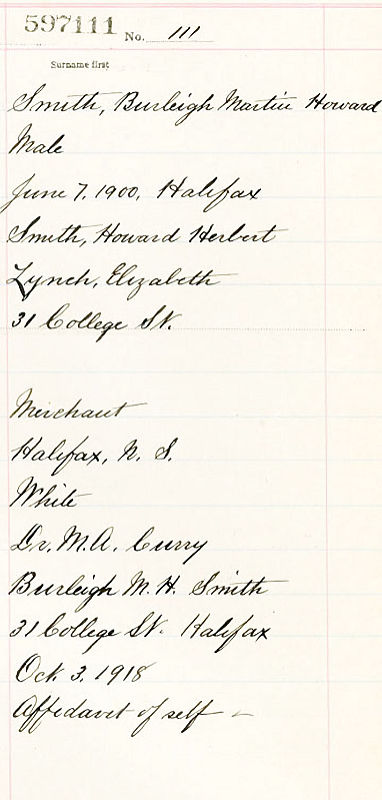 597111 No. 111
Surname first
Smith, Burleigh Martin Howard
Male
June 7, 1900, Halifax
Smith, Howard Herbert
Lynch, Elizabeth
31 College St.
Merchant
Halifax, N. S.
White
Dr. M.A. Curry
Burleigh M. H. Smith
31 College St. Halifax
Oct. 3, 1918
Affidavit of self -